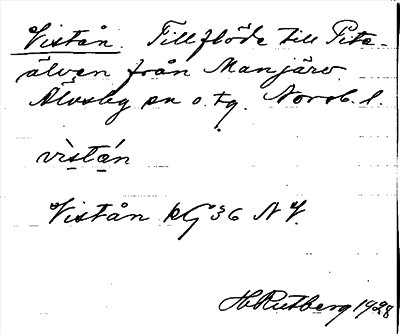 Vistån. Tillflöde till Pite-
älven från Manjärv.
Älvsby sn o. tg. Norrb. l.
vìstǻn
Vistån KG 36 NV.
H Rutberg 1928